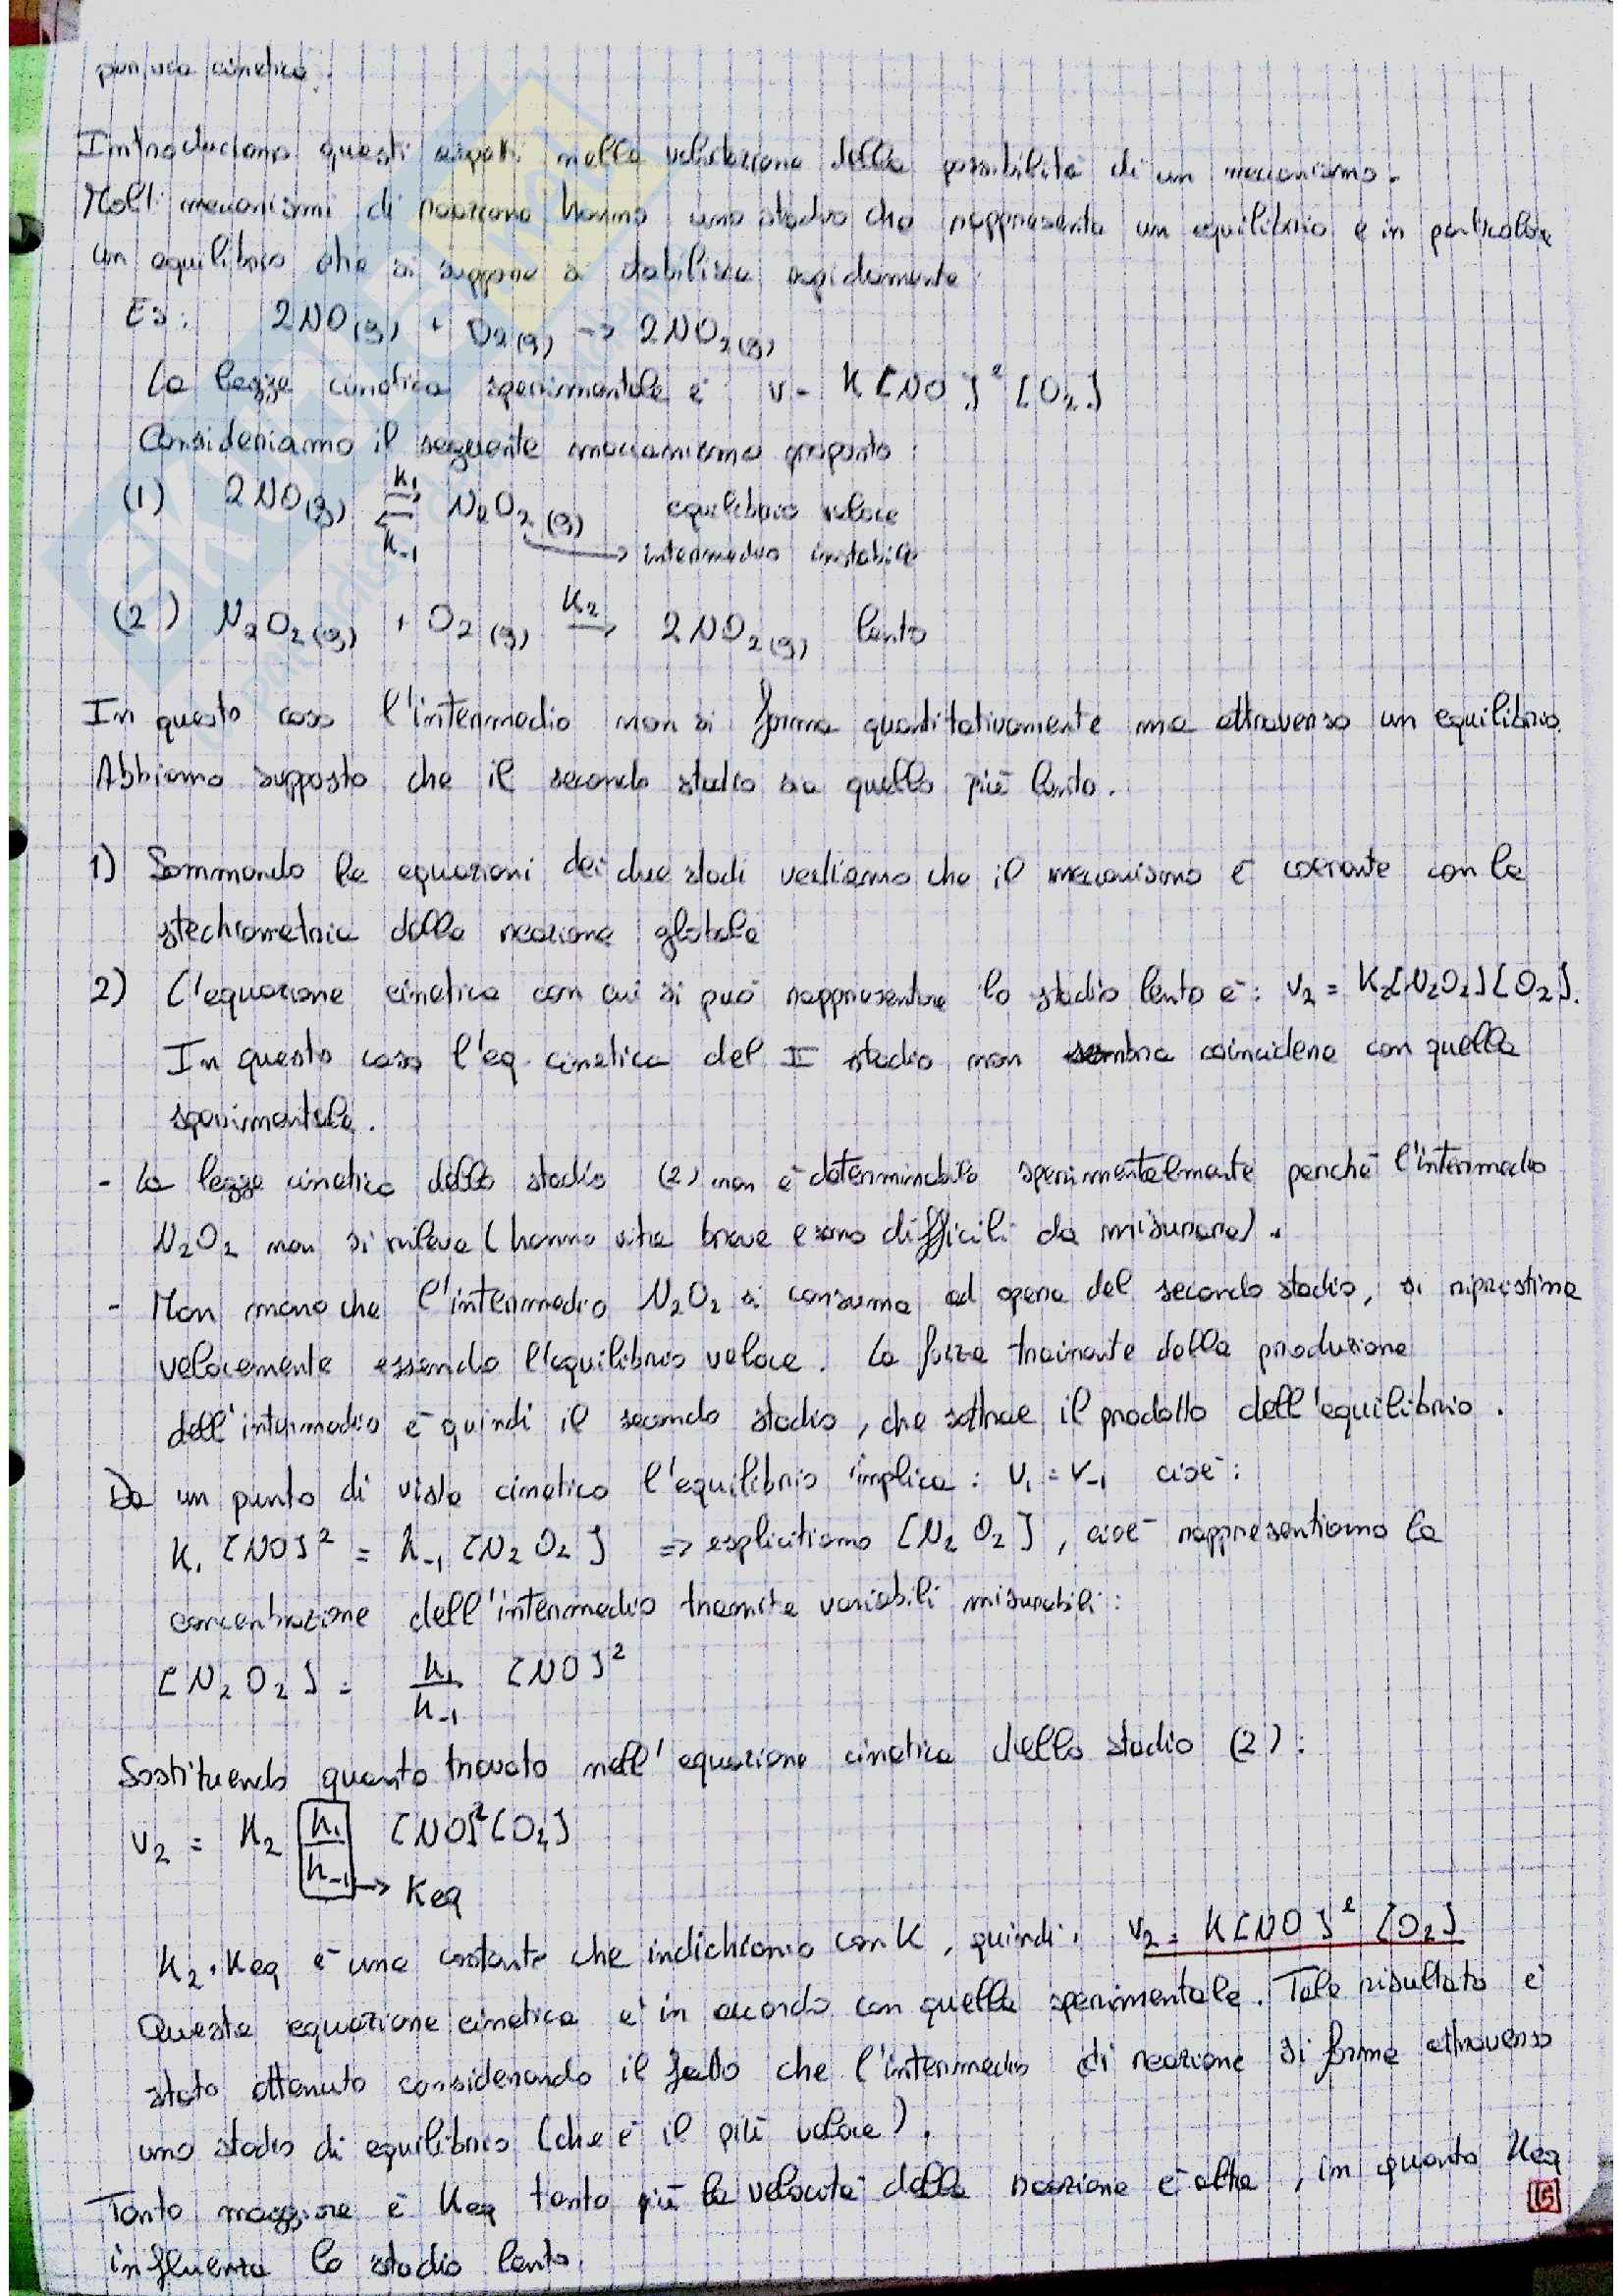 pura cinetica.
Introduciamo questi aspetti nella valutazione della possibilità di un meccanismo.
Molti meccanismi di reazione hanno uno stadio che rappresenta un equilibrio e in particolare
un equilibrio che si suppone si stabilisca rapidamente.
Es: 2NO(g) + O2(g) → 2NO2(g)
La legge cinetica sperimentale è v = K[NO]² [O2]
Consideriamo il seguente meccanismo proposto:
(1) 2NO(g) ⇌ N2O2(g) equilibrio veloce
K1
K-1
→ intermedio instabile
(2) N2O2(g) + O2(g) →K2 2NO2(g) lento
In questo caso l'intermedio non si forma quantitativamente ma attraverso un equilibrio.
Abbiamo supposto che il secondo stadio sia quello più lento.
1) Sommando le equazioni dei due stadi vediamo che il meccanismo è coerente con la
stechiometria della reazione globale
2) L'equazione cinetica con cui si può rappresentare lo stadio lento è: v2 = K2[N2O2][O2].
In questo caso l'eq. cinetica del II stadio non sembra coincidere con quella
sperimentale.
- La legge cinetica dello stadio (2) non è determinabile sperimentalmente perché l'intermedio
N2O2 non si rileva (hanno vita breve e sono difficili da misurare).
- Man mano che l'intermedio N2O2 si consuma ad opera del secondo stadio, si ripristina
velocemente essendo l'equilibrio veloce. La forza trainante della produzione
dell'intermedio è quindi il secondo stadio, che sottrae il prodotto dell'equilibrio.
Da un punto di vista cinetico l'equilibrio implica: v1 = v-1 cioè:
K1 [NO]² = K-1 [N2O2] => esplicitiamo [N2O2], cioè rappresentiamo la
concentrazione dell'intermedio tramite variabili misurabili:
[N2O2] = K1/K-1 [NO]²
Sostituendo quanto trovato nell'equazione cinetica dello stadio (2):
v2 = K2 K1/K-1 [NO]²[O2]
→ Keq
K2·Keq è una costante che indichiamo con K, quindi: v2 = K[NO]² [O2]
Questa equazione cinetica è in accordo con quella sperimentale. Tale risultato è
stato ottenuto considerando il fatto che l'intermedio di reazione si forma attraverso
uno stadio di equilibrio (che è il più veloce).
Tanto maggiore è Keq tanto più la velocità della reazione è alta, in quanto Keq
influenza lo stadio lento.